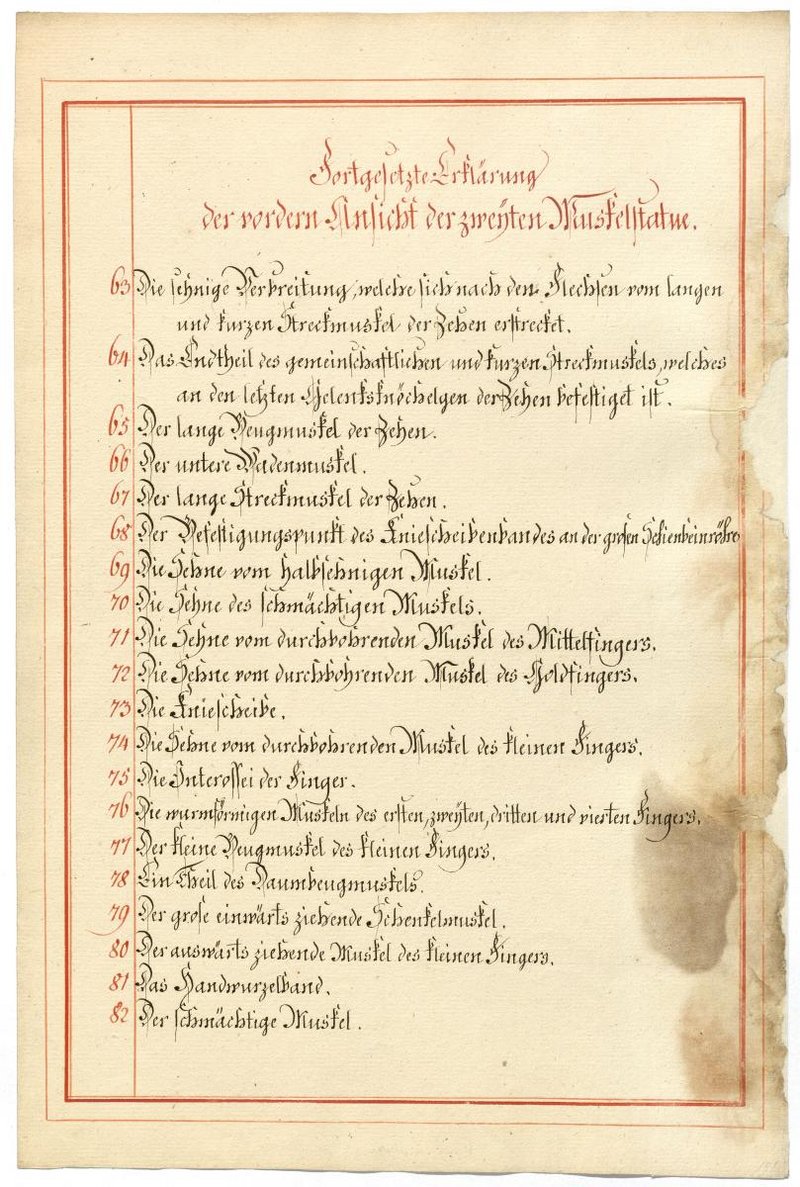 Fortgesetzte Erklärung
der vordern Ansicht der zweyten Muskelstatue.
63 Die sehnige Verbreitung, welche sich nach den Flechsen vom langen
und kurzen Streckmuskel der Zehen erstrecket.
64 Das Endtheil des gemeinschaftlichen und kurzen Streckmuskels, welches
an den letzten Gelenksknöchelgen der Zehen befestiget ist.
65 Der lange Beugmuskel der Zehen.
66 Der untere Wadenmuskel.
67 Der lange Streckmuskel der Zehen.
68 Der Befestigungspunkt des Kniescheibenbandes an der grosen Schienbeinröhre
69 Die Sehne vom halbsehnigen Muskel.
70 Die Sehne des schmächtigen Muskels.
71 Die Sehne vom durchbohrenden Muskel des Mittelfingers.
72 Die Sehne vom durchbohrenden Muskel des Goldfingers.
73 Die Kniescheibe.
74 Die Sehne vom durchbohrenden Muskel des kleinen Fingers.
75 Die Interossei der Finger.
76 Die wurmförmigen Muskeln des ersten, zweyten, dritten und vierten Fingers.
77 Der kleine Beugmuskel des kleinen Fingers.
78 Ein Theil des Daumbeugmuskels.
79 Der grose einwärts ziehende Schenkelmuskel.
80 Der auswärts ziehende Muskel des kleinen Fingers.
81 Das Handwurzelband.
82 Der schmächtige Muskel.